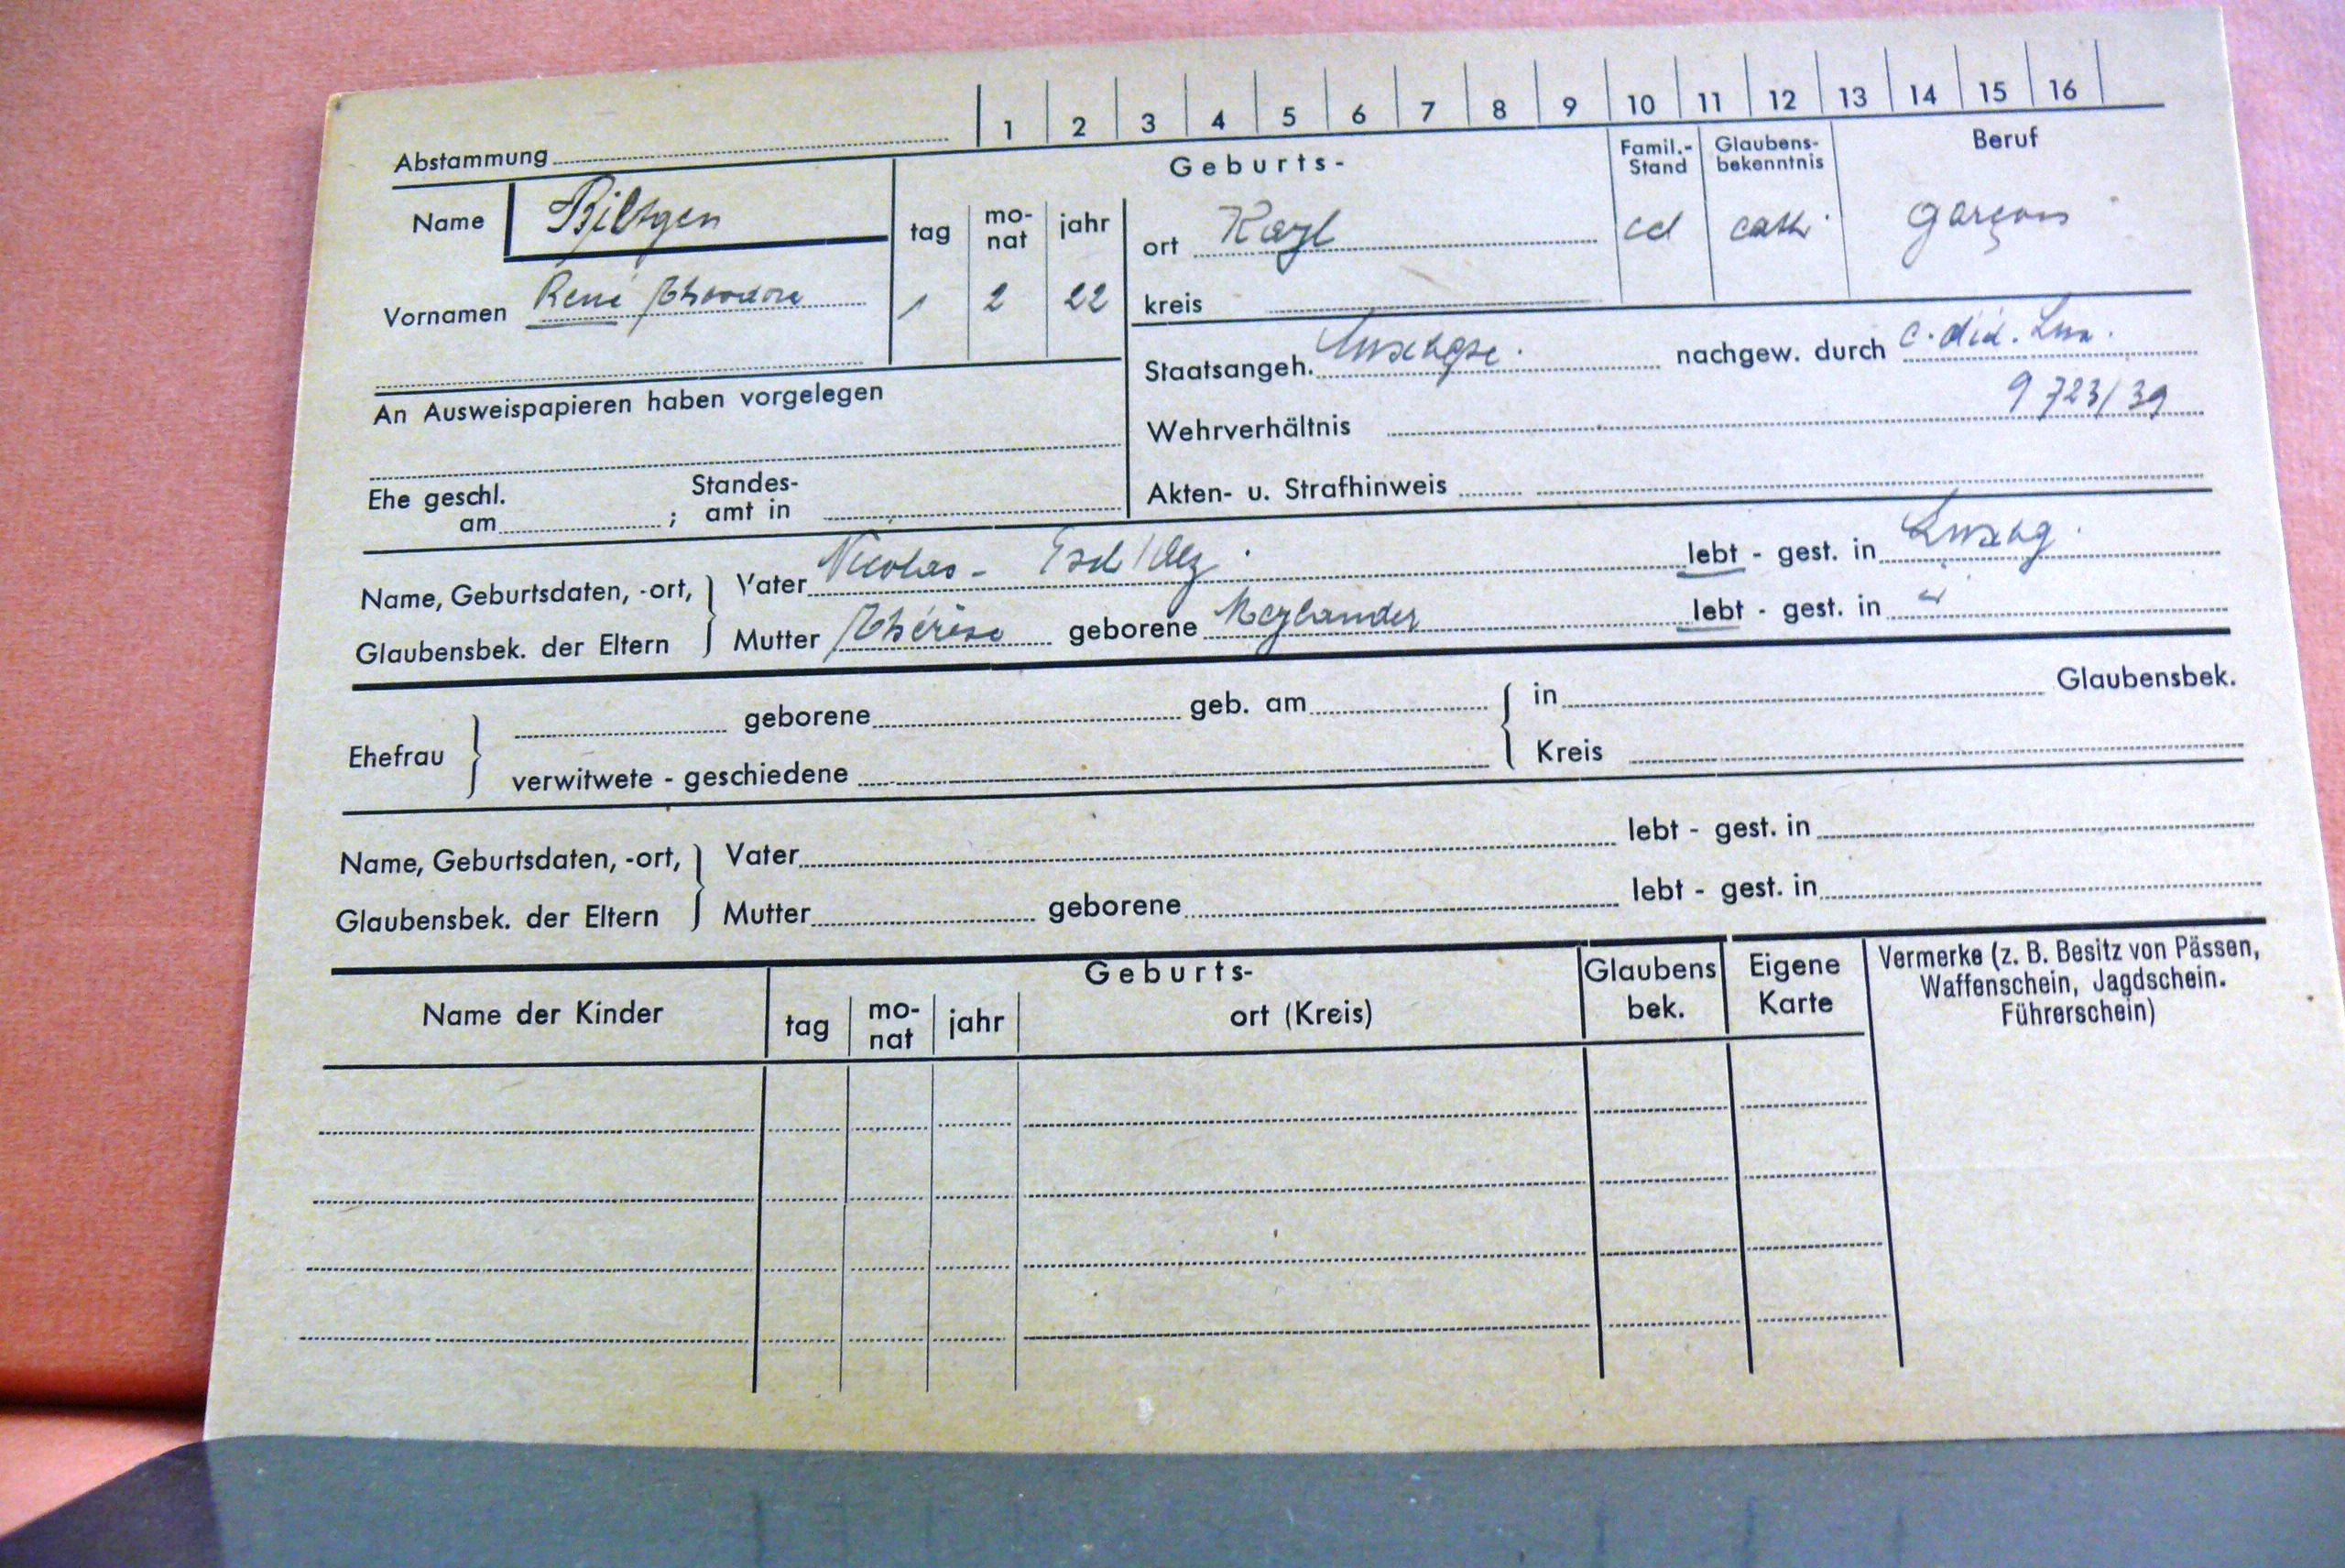 Abstammung 1 2 3 4 5 6 7 8 9 10 11 12 13 14 15 16
Name Biltgen
Vornamen René Théodore
Geburts-
tag mo-nat jahr
1 2 22
ort Kayl
kreis
Famil.-Stand
cel
Glaubens-bekenntnis
cath.
Beruf
garçon
Staatsangeh. luxbgse. nachgew. durch c. did. Lux.
9723/39
Wehrverhältnis
Akten- u. Strafhinweis
An Ausweispapieren haben vorgelegen
Ehe geschl. am ; Standes-amt in
Name, Geburtsdaten, -ort,
Glaubensbek. der Eltern
Vater Nicolas - Esch/Alz. lebt - gest. in Luxbg.
Mutter Thérèse geborene Meylander lebt - gest. in "
Ehefrau
geborene geb. am in Glaubensbek.
verwitwete - geschiedene Kreis
Name, Geburtsdaten, -ort,
Glaubensbek. der Eltern
Vater lebt - gest. in
Mutter geborene lebt - gest. in
Name der Kinder
Geburts-
tag mo-nat jahr ort (Kreis)
Glaubens bek.
Eigene Karte
Vermerke (z. B. Besitz von Pässen,
Waffenschein, Jagdschein.
Führerschein)